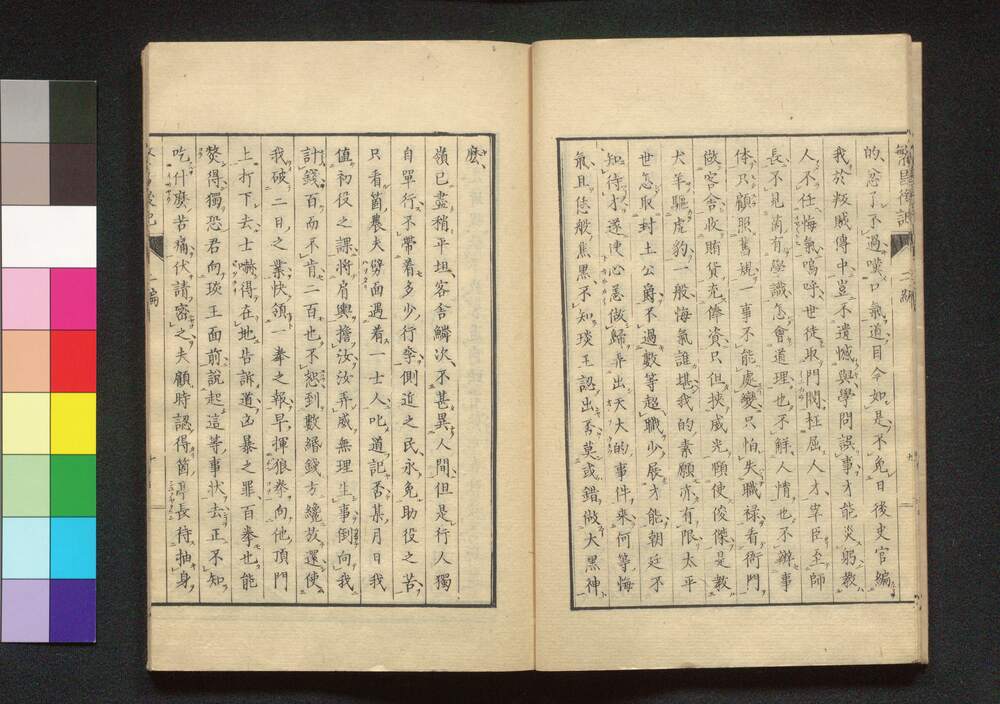 的、忿了不過嘆口氣道目今如是不免日後史官編
我於叛賊傳中豈不遺憾與學問誤事才能災躬教
人不仕悔氣嗚呼世徒取門閥枉屈人才宰臣至師
長不見萬有學識怎會道理也不解人情也不辦事
体只顧照舊規一事不能處變只怕失職禄看衙門
做客舍收賄貸充俸資只但挾威光頤使俊傑是教
犬羊驅虎豹一般悔氣誰堪我的素願亦有限太平
世怎取封土公爵不過數等超職少展才能朝廷不
知侍才遂使心惡做歸弄出天大的事件来何等悔
氣且恁般焦黒不知琰王認出否莫或錯做大黒神
麽
嶺已盡稍平坦客舎鱗次不甚異人間但是行人獨
自單行不帶着多少行李側近之民永免助役之苦
只看箇農夫劈面遇着一士人叱道記否某月日我
值初役之課將肩輿擔汝汝弄威無理生事倒向我
計錢百而不肯二百也不恕到數緡錢方纔放還使
我破二日之業快領一拳之報早揮狼拳向他頂門
上打下去士嚇得在地告訴道凶暴之罪百拳也能
熬得獨恐君向琰王面前説起這等事状去正不知
吃什麼苦痛伏請密之夫顧時認得箇亭長待抽身
二編